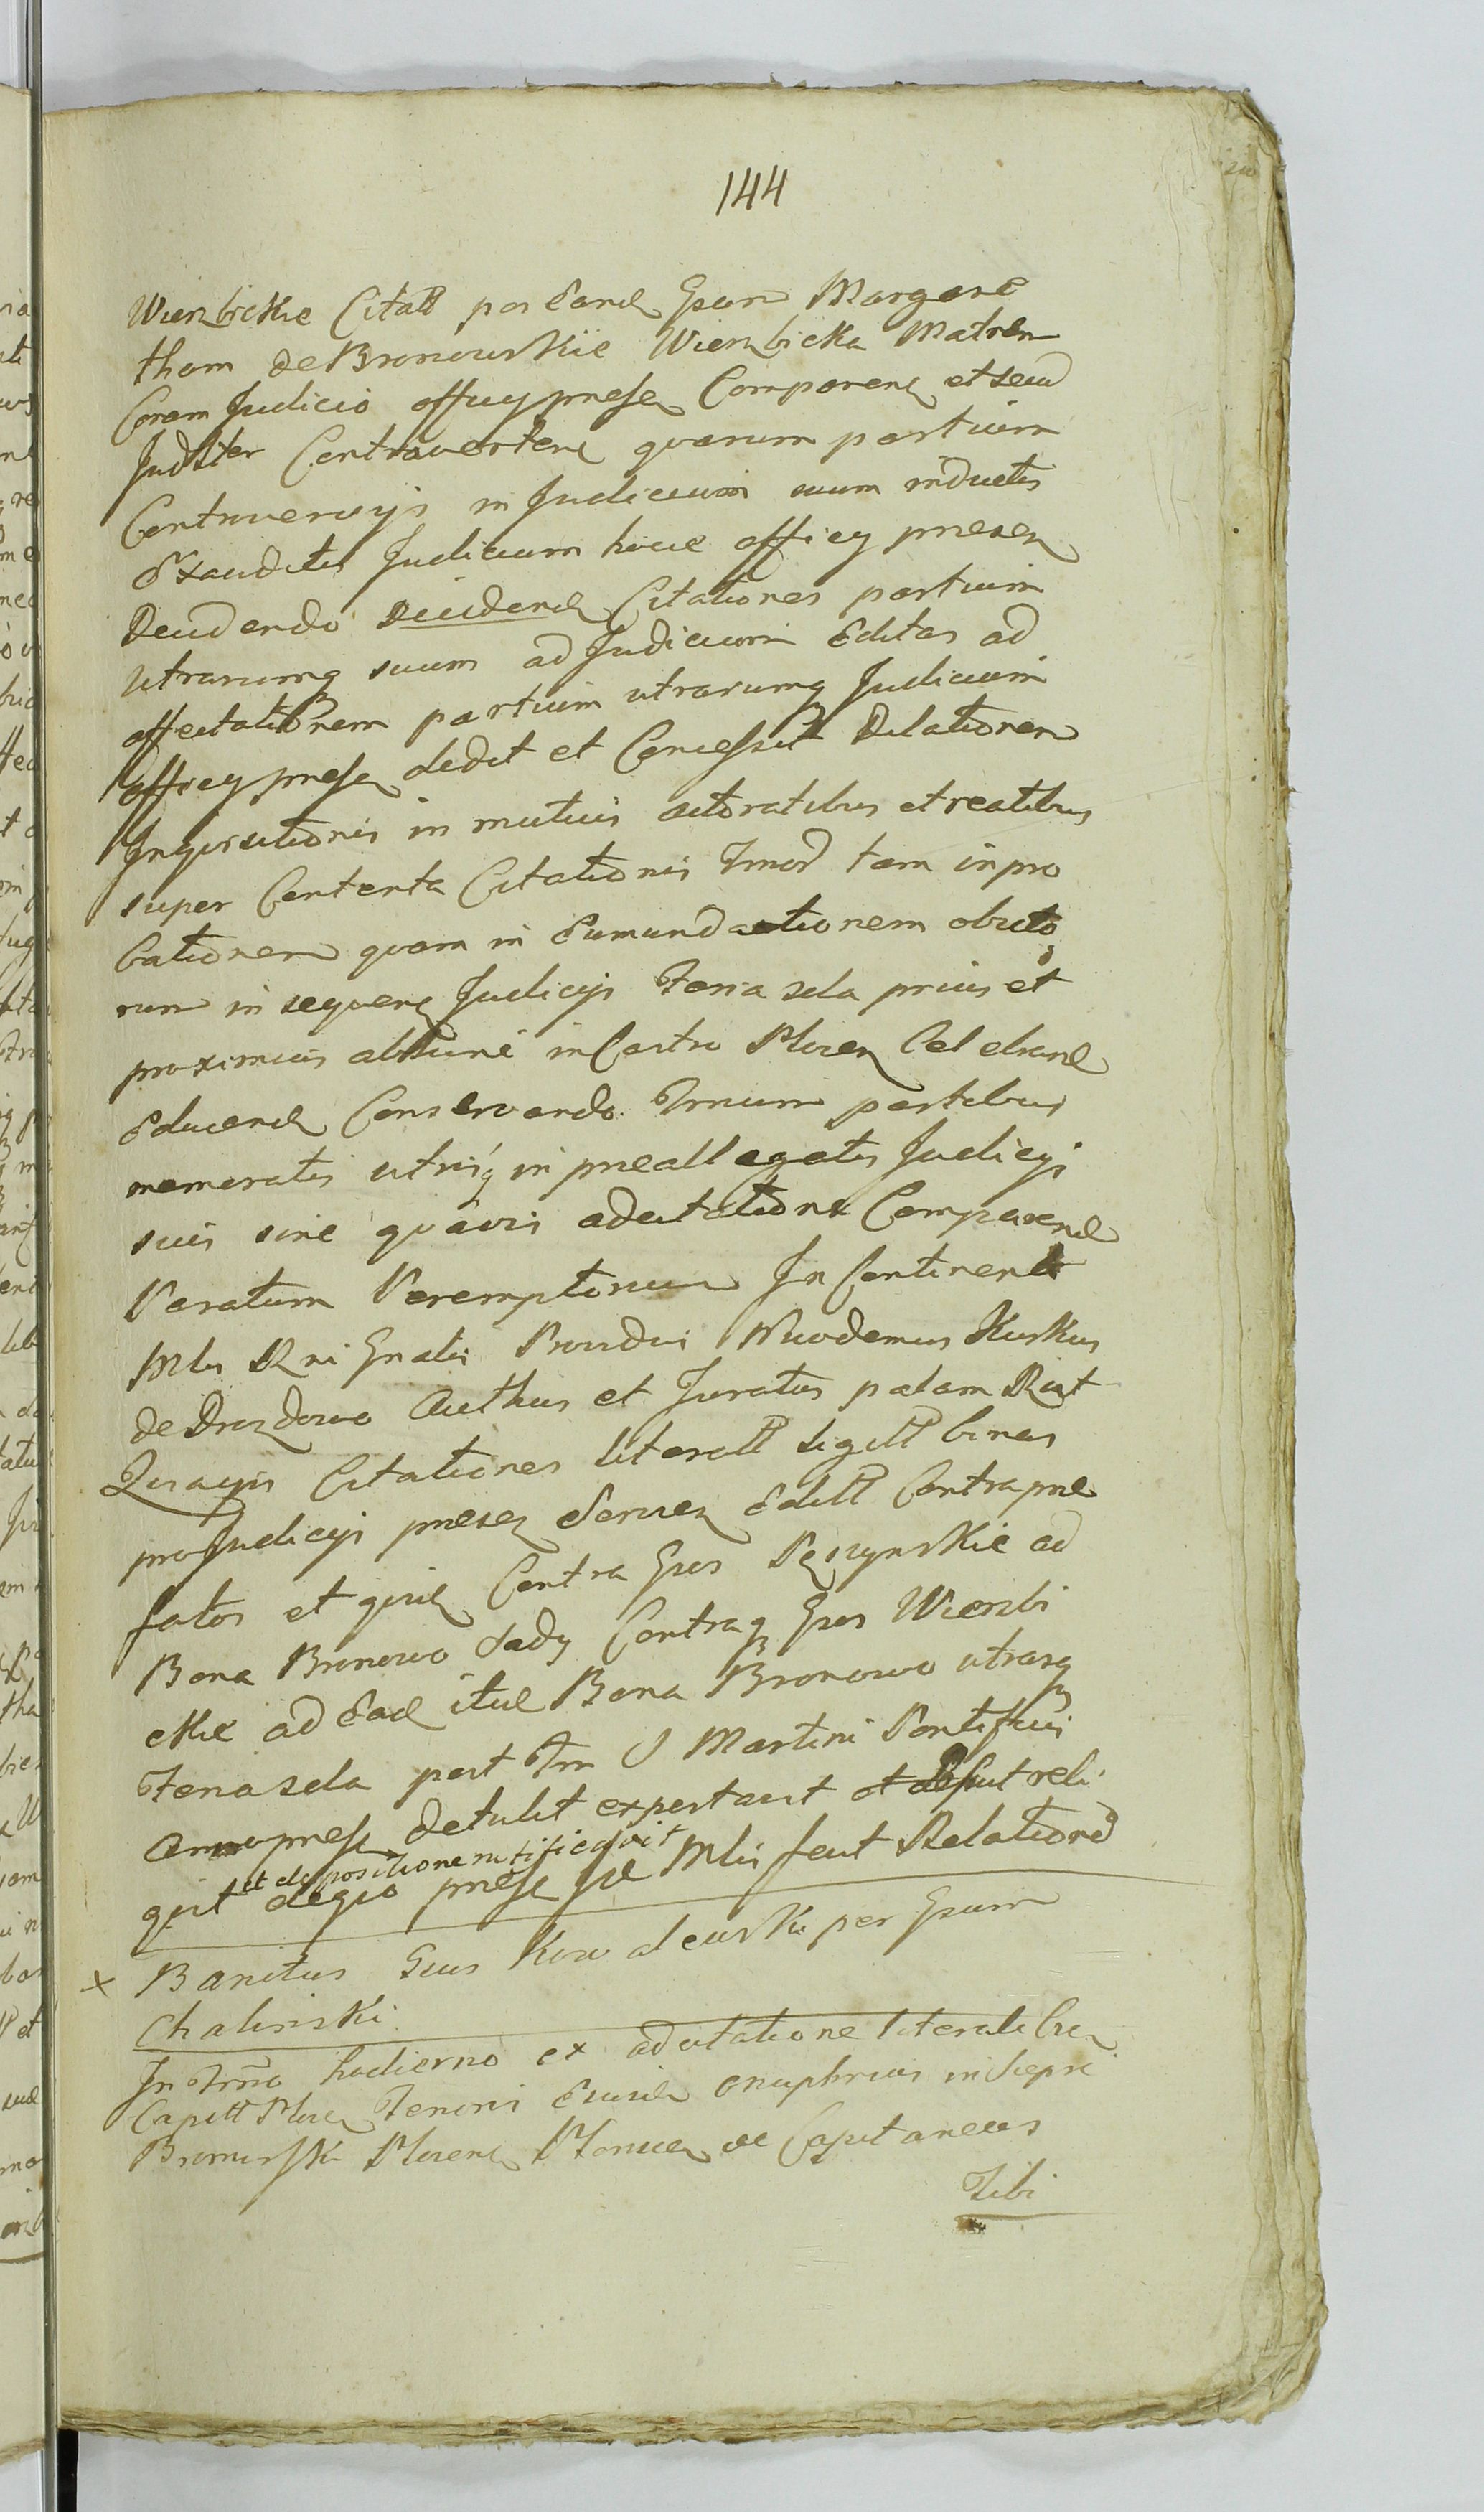 144
Wierzbickie Citatt per eand Gsam Margare
tham de Bronowskie Wierzbicka Matrem
Coram Judicio officy prnse Comparen et seud
Juditer Controverten quarum partium
Controversys in Judicium suum inductis
Exauditis Judicium hocce officy praesen
Decidendo Decidend Citationes partium
utrarumq suum ad Judicium Editas ad
affectationem partium utrarumq Judicium
officy prnse dedit et Concessit Dilationem
Inquisitionis in mutuis actoratibus et reatibus
super Contenta Citationis Imod tam in pro
bationem quam in Eumundationem obiecto
rum in sequen Judicys Feria 2da prius et
proximius abhinc in Castro Plocen Celebrand
Educend Conservando Trnum partibus
memoratis utrisq in praeallegatis Judicys
suis sine quavis adcitatione Comparend
Paratum Peremptorium In Continenti
Mlis Rni Gnalis Providus Nicodemus Kuskus
de Drozdowo Authus et Juratus palam Rcit
Quia ijs Citationes literatt sigilt binas
pro Judicys praesen Servien Editt Contra prae
fatos et quid Contra Gsos Pęszynskie ad
Bona Bronowo Sady Contraq Gsos Wierzbi
ckie ad Ead itid Bona Bronowo utrasq
Feria 2da post Trn S Martini Pontificis
Anno prnse detulit exportavit et reli
et depositione notificavit
qsit deqso prnse sue Mlis fecit Relationē
x Banitus Gsus Kowalewski per Gsum
Chalinski
In Trn̄o hodierno ex adcitatione literali
Capitt Plocen Tenoris Onuphrius in Sieprc
Bromirski Plocen Capitaneus
Tibi